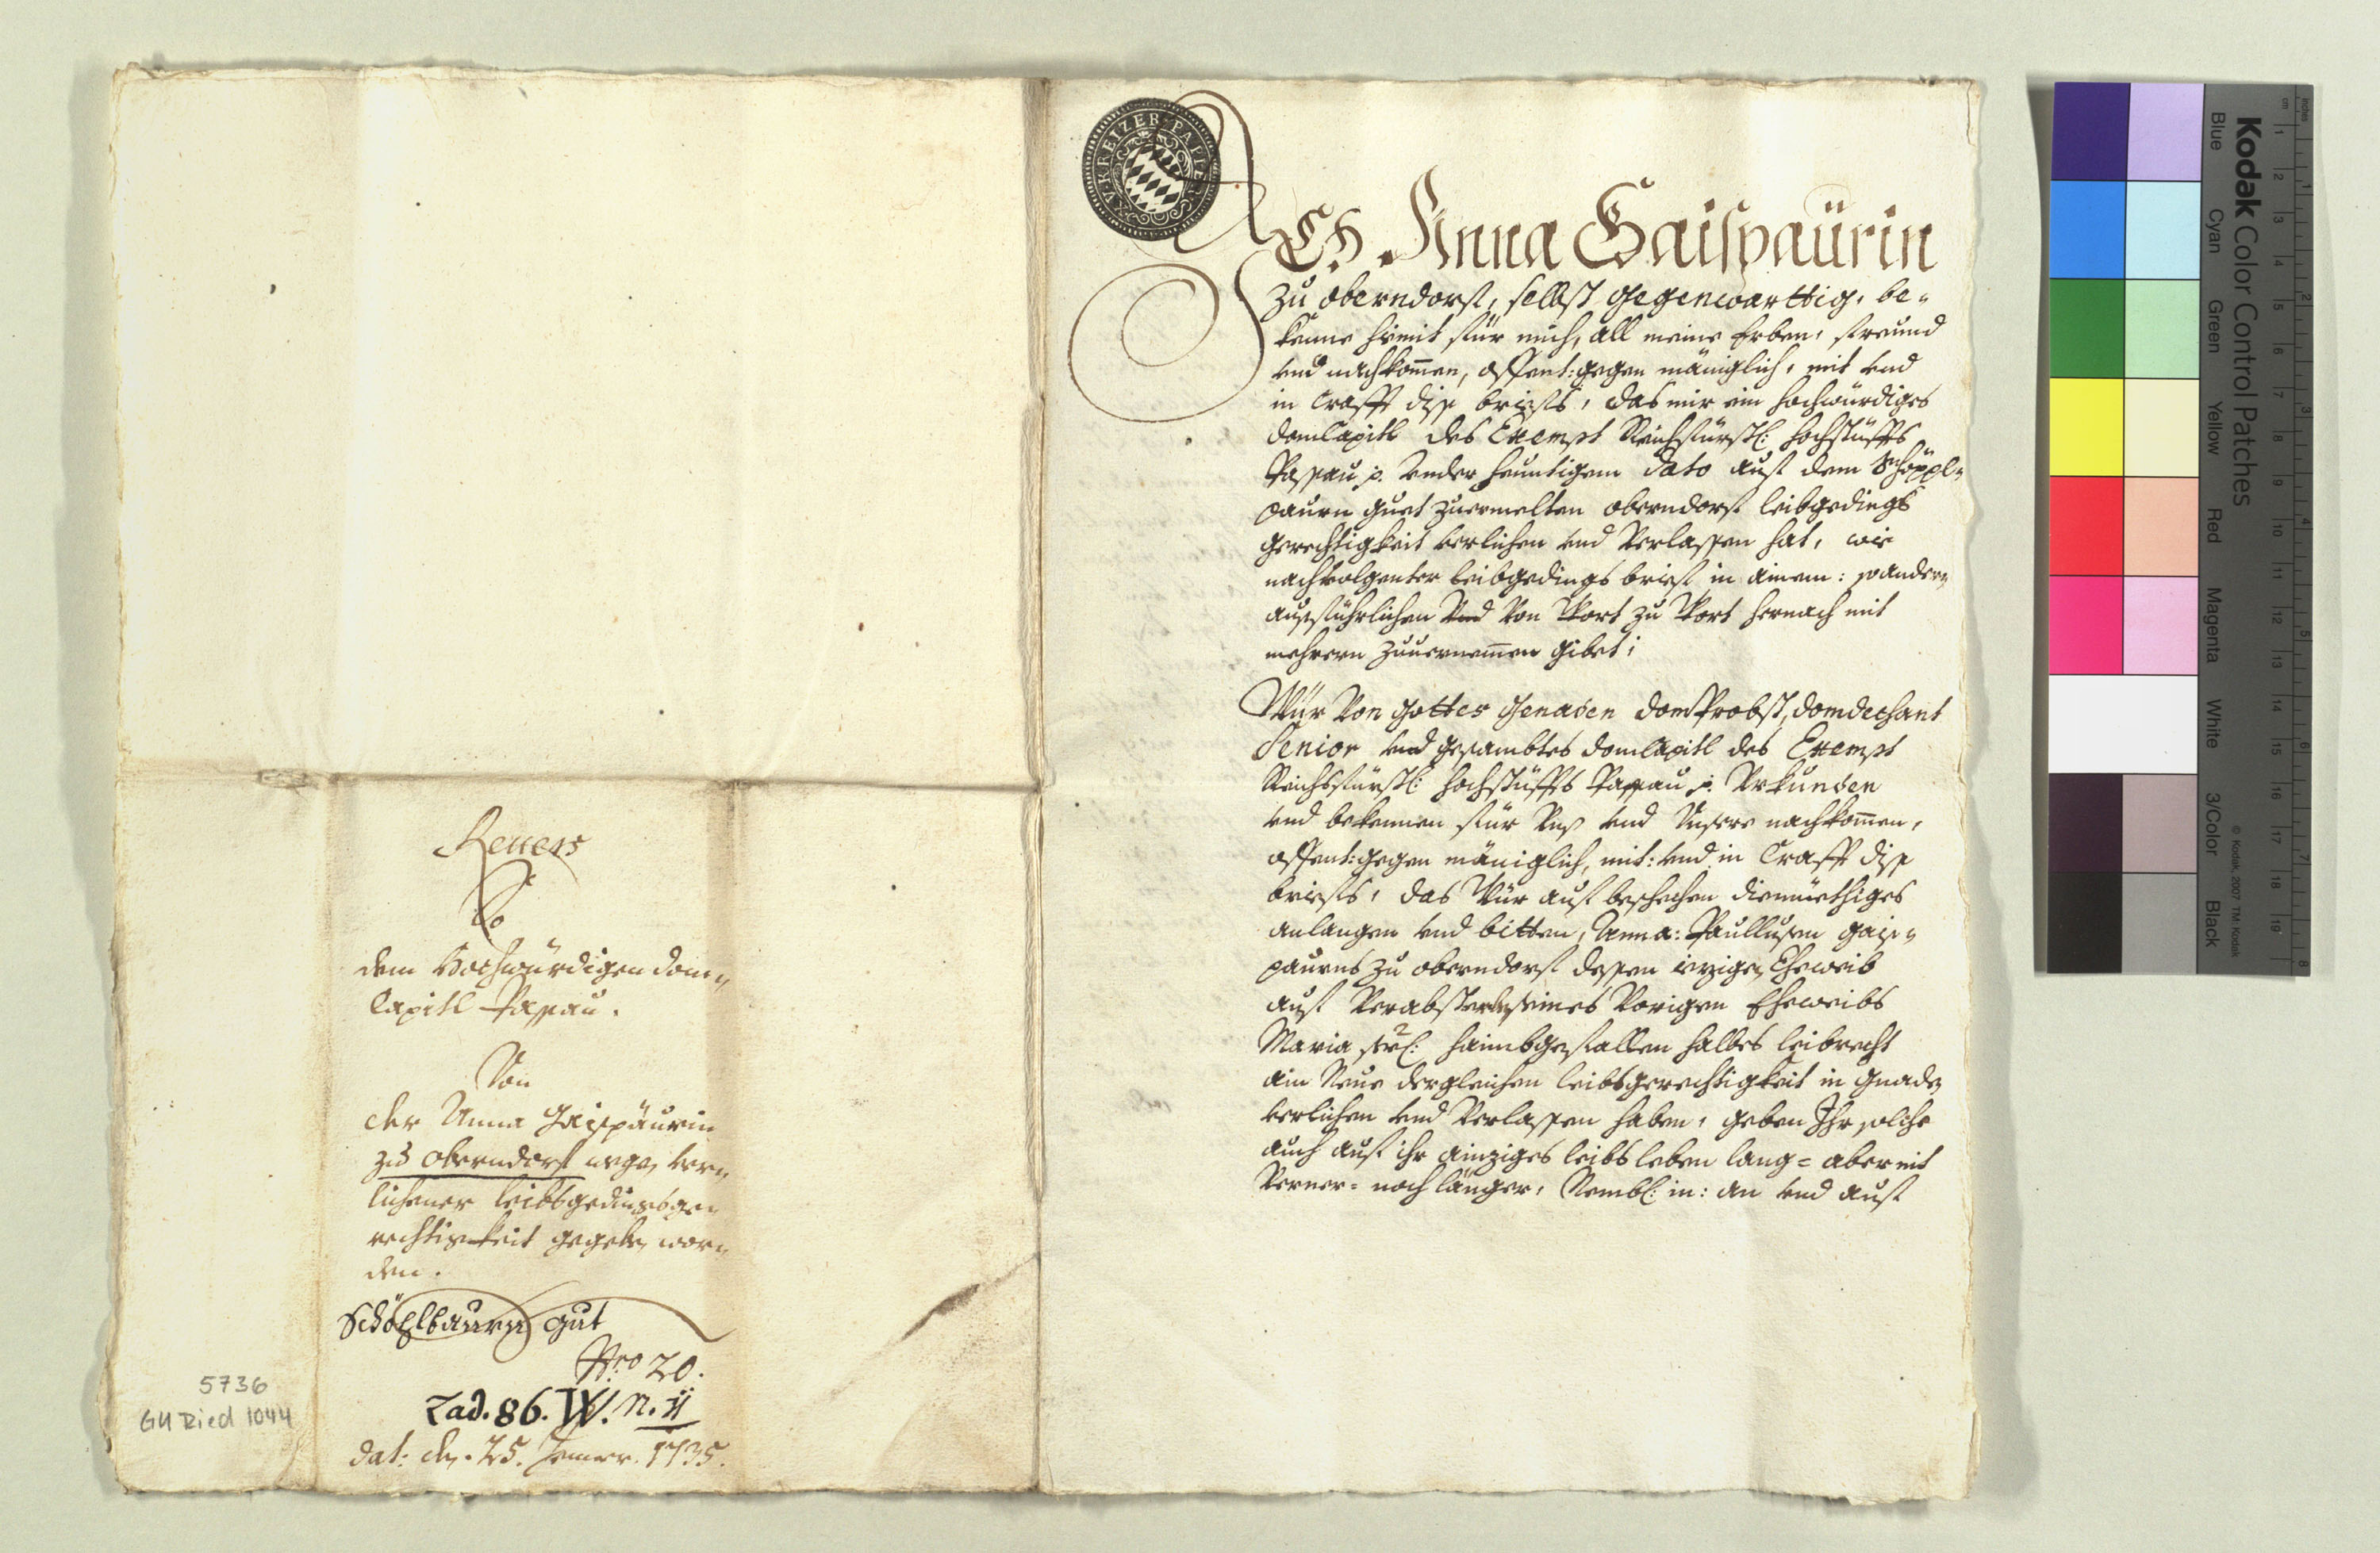 Revers
So
dem Hochwürdigen Dom=
Capitl Passau.
Von
der Anna Gaispäurin
zu Oberndorf wegen ver=
lichener leibsgedingsge=
rechtigkeit gegeben wor=
den.
Schöplbaurn gut
Nro 20.
Lad. 86. W. N. 11
dat: den 25. Jenner. 1735.
5736
GU Ried 1044
KREIZER PAPIER
ICH Anna Gaispaürin
zu Oberndorf, selbst gegenwarttig, be=
kenne hiemit für mich, all meine Erben, freund
vnd nachkommen, offent: gegen mäniglich, mit vnd
in Crafft diss briefs, das mir ein hochwürdiges
domCapitl des Exempt Reichsfürstl: hochstüffts
Passau p. vnder heuntigem dato auf dem Schöppl=
paurn guet zuermelten Oberndorf leibgedings
gerechtigkeit verlichen vnd Verlassen hat, wie
nachvolgenter leibgedings brief in ainem: so andern
ausführlichen Von Wort zu Wort hernach mit
mehrern zuuernemmen gibet;
Wür Von Gottes Genaden domProbst, domdechant
Senior vnd gesambtes domCapitl des Exempt
Reichsfürstl: hochstüffts Passau p. Vrkunden
vnd bekennen für Vnß vnd Vnsere nachkommen,
offent: gegen mäniglich, mit: vnd in Crafft diss
briefs, das Wür auf beschechen diemüethiges
anlangen vnd bitten, Anna: Paullusen gaiß=
paurns zu Oberndorf dessen iezigen Eheweib
auf Verabsterben seines Vorigen Eheweibs
Maria seel: haimbgefallen halbes leibrecht
ain Neue dergleichen leibsgerechtigkeit in Gnaden
verlichen vnd Verlassen haben, geben Ihr solche
auch auf ihr ainziges leibs leben lang= aber nit
Verner= noch länger, Nembl: in: an vnd auf
Kodak Color Control Patches
Blue
Cyan
Green
Yellow
Red
Magenta
White
3/Color
Black
© Kodak, 2007 TM: Kodak
inches
cm
1
2
3
4
5
6
7
8
9
10
11
12
13
14
15
16
17
18
19
1
2
3
4
5
6
7
8